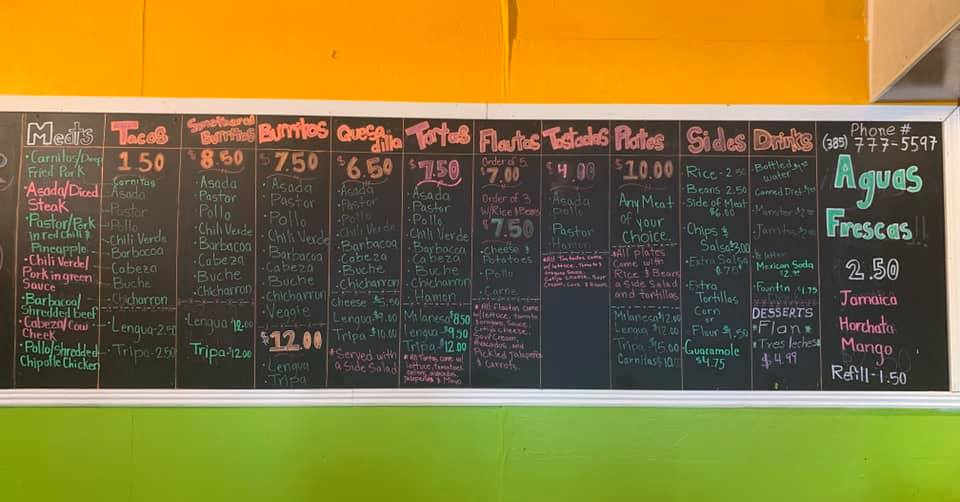 Meats
•Carnitas/Deep
Fried Pork
•Asada/Diced
Steak
•Pastor/Pork
in red Chili &
Pineapple
•Chili Verde/
Pork in green
Sauce
•Barbacoa/
Shredded beef
•Cabeza/Cow
Cheek
•Pollo/Shredded
Chipotle Chicken
Tacos
1.50
Carnitas
Asada
Pastor
Pollo
Chili Verde
Barbacoa
Cabeza
Buche
Chicharron
•Lengua-2.50
•Tripa-2.50
Smothered
Burritos
$8.50
•Asada
•Pastor
•Pollo
•Chili Verde
•Barbacoa
•Cabeza
•Buche
•Chicharron
•Lengua $12.00
•Tripa-$12.00
Burritos
$7.50
•Asada
•Pastor
•Pollo
•Chili Verde
•Barbacoa
•Cabeza
•Buche
•Chicharron
•Veggie
$12.00
•Lengua
•Tripa
Quesa
dilla
$6.50
•Asada
•Pastor
•Pollo
•Chili Verde
•Barbacoa
•Cabeza
•Buche
•Chicharron
Cheese $5.50
Lengua $9.00
Tripa $10.00
*Served with
a Side Salad
Tortas
$7.50
•Asada
•Pastor
•Pollo
•Chili Verde
•Barbacoa
•Cabeza
•Buche
•Chicharron
•Hamon
Milanesa $8.50
Lengua $9.50
Tripa $12.00
*All Tortas come w/
lettuce, tomatoes
onions, avocados,
Jalapeños & Mayo
Flautas
Order of 5
$7.00
Order of 3
w/Rice & Beans
$7.50
•Cheese &
Potatoes
•Pollo
•Carne
*All Flautas come
w/lettuce, tomato
Sour Cream,
Avocados, and
Pickled Jalapeños
& Carrots.
Tostadas
$4.00
•Asada
•Pollo
•Pastor
•Hamon
*All Tostadas come
w/lettuce, tomato
Platos
$10.00
Any Meat
of your
Choice.
*All plates
Come with
Rice & Beans
a side Salad
and tortillas.
Milanesa $12.00
Lengua $12.00
Tripa $15.00
Carnitas $10.00
Sides
•Rice-2.50
•Beans 2.50
•Side of Meat
$6.00
•Chips &
Salsa $3.00
•Extra Salsa
$.75
•Extra
Tortillas
Corn
or
Flour $1.50
Guacamole
$4.75
Drinks
•Bottled
Water
Mexican Soda
Fountin $1.75
DESSERTS
*Flan*
*Tres leches*
$4.99
Phone #
(385) 777-5597
Aguas
Frescas!!
2.50
•Jamaica
•Horchata
•Mango
Refill-1.50